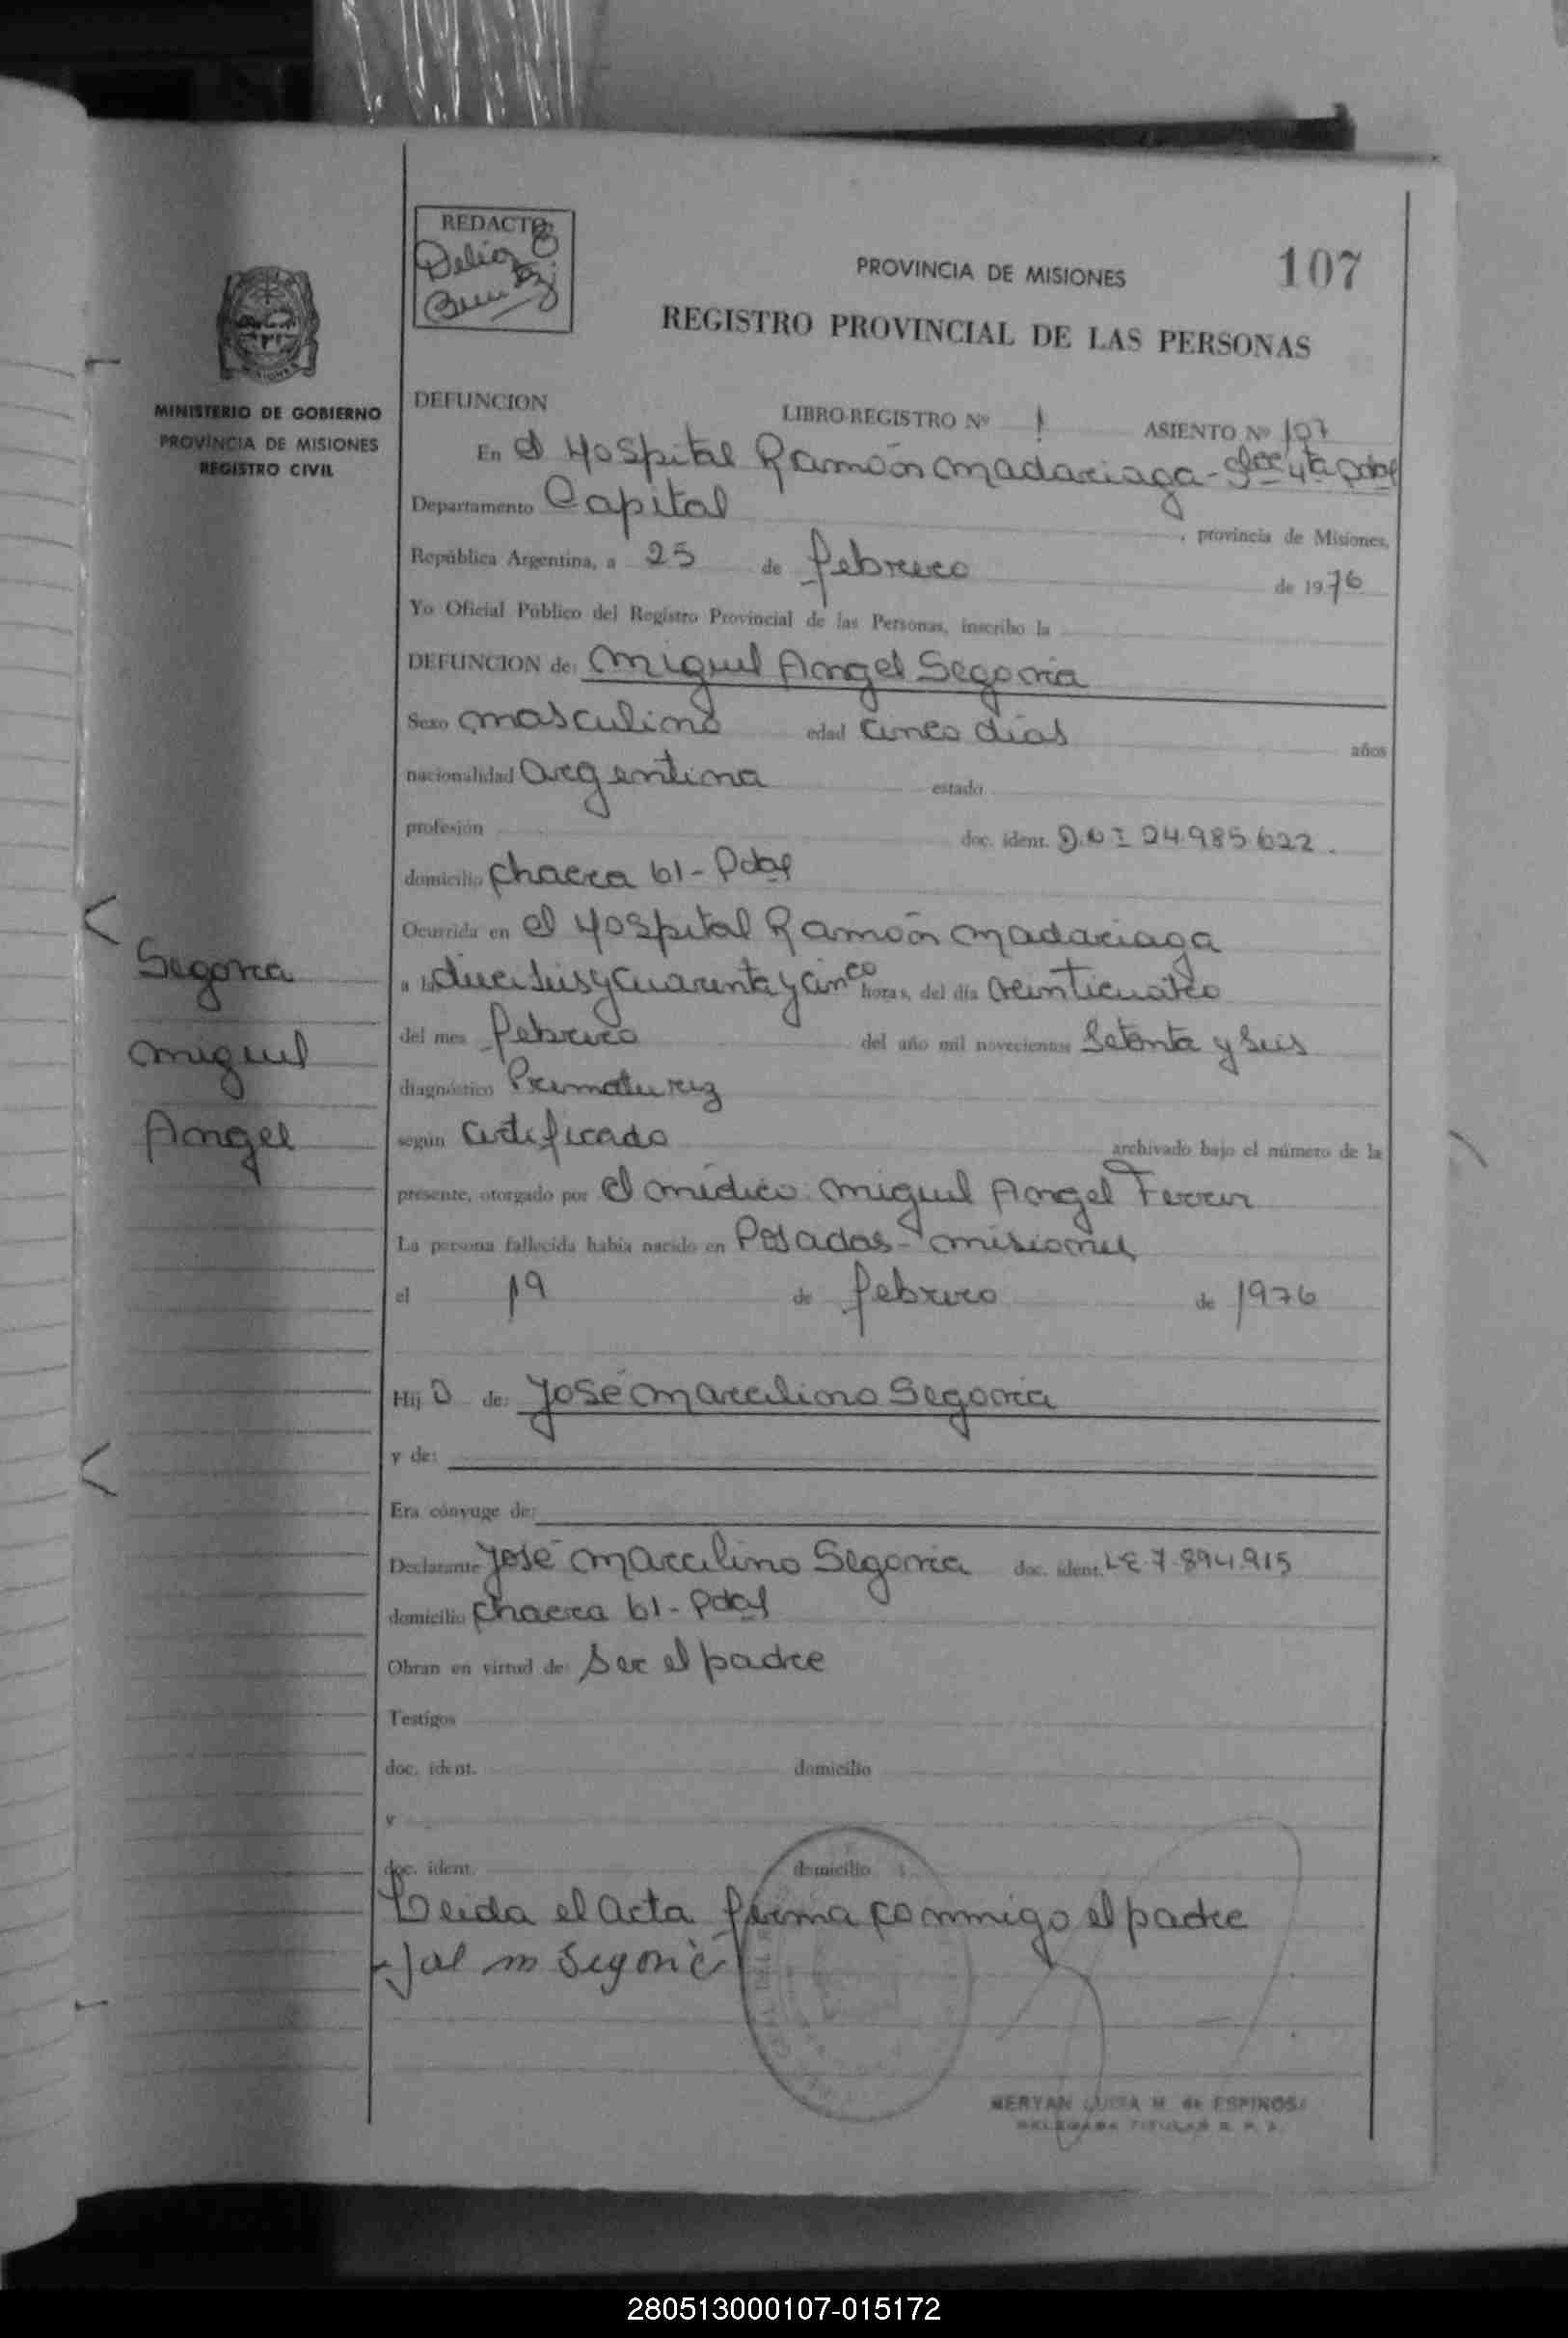 REDACTO
Delia
PROVINCIA DE MISIONES
107
REGISTRO PROVINCIAL DE LAS PERSONAS
MINISTERIO DE GOBIERNO
PROVINCIA DE MISIONES
REGISTRO CIVIL
DEFUNCION LIBRO-REGISTRO Nº 1 ASIENTO Nº 107
En el Hospital Ramón Madariaga - 4ta Pdas
Departamento Capital, provincia de Misiones,
República Argentina, a 25 de febrero de 1976
Yo Oficial Público del Registro Provincial de las Personas, inscribo la
DEFUNCION de: Miguel Angel Segovia
Sexo masculino edad cinco días años
nacionalidad argentina estado
profesión doc. ident. D.N.I 24.985.622.
domicilio Chacra 61 - Pdas
Ocurrida en el Hospital Ramón Madariaga
a las dieciseis y cuarenta y cinco horas, del día veinticuatro
del mes febrero del año mil novecientos setenta y seis
diagnóstico Prematurez
según certificado archivado bajo el número de la
presente, otorgado por el médico Miguel Angel Ferrer
La persona fallecida había nacido en Posadas - Misiones
el 19 de febrero de 1976
Hij o de: José Marcelino Segovia
y de:
Era cónyuge de:
Declarante José Marcelino Segovia doc. ident. L.E 7.894.915
domicilio Chacra 61 - Pdas
Obran en virtud de ser el padre
Testigos
doc. ident. domicilio
y
doc. ident. domicilio
Leida el acta firma conmigo el padre
José M Segovia
Segovia
Miguel
Angel
MERYAN LUISA M. de ESPINOSA
DELEGADA TITULAR R. P. P.
280513000107-015172